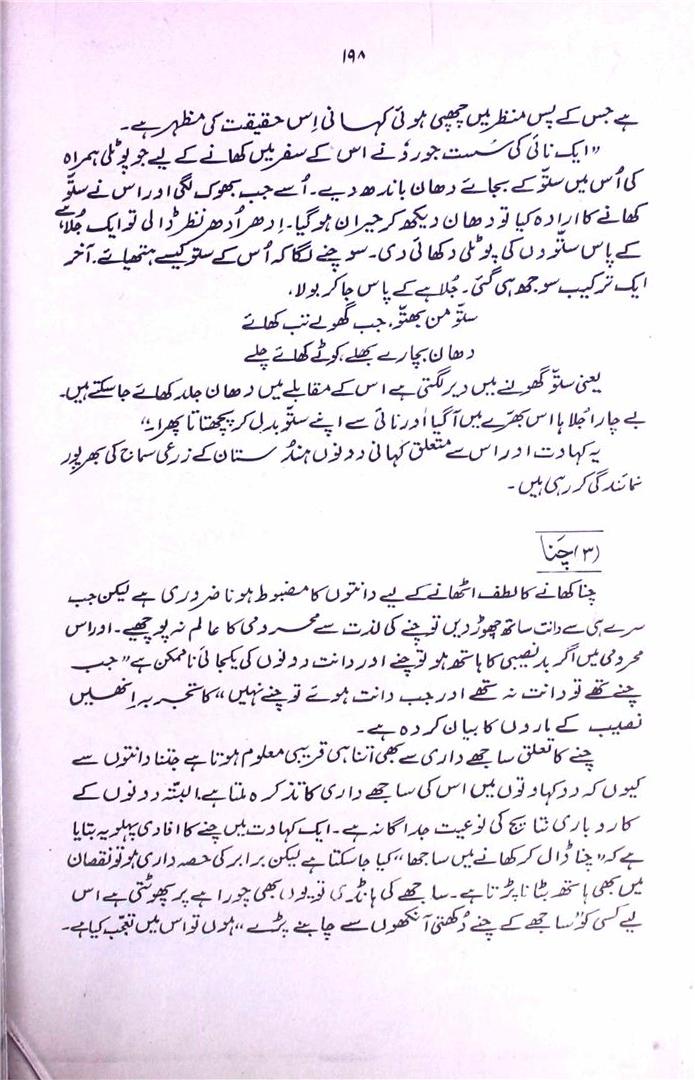 ۱۹۸
ہے جس کے پس منظر میں چھپی ہوئی کہانی اِس حقیقت کی مظہر ہے۔
”ایک نائی کی سُست جورو نے اس کے سفر میں کھانے کے لیے جو پوٹلی ہمراہ
کی اُس میں ستّو کے بجائے دھان باندھ دیے۔ اُسے جب بھوک لگی اور اس نے ستّو
کھانے کا ارادہ کیا تو دھان دیکھ کر حیران ہوگیا۔ اِدھر اُدھر نظر ڈالی تو ایک جُلاہے
کے پاس ستّوؤں کی پوٹلی دکھائی دی۔ سوچنے لگا کہ اُس کے ستّو کیسے ہتھیائے۔ آخر
ایک ترکیب سوجھ ہی گئی۔ جُلاہے کے پاس جا کر بولا،
ستّو من بھتّو، جب گھولے تب کھائے
دھان بچارے بھلے، کوٹے کھائے چلے
یعنی ستّو گھولنے میں دیر لگتی ہے اس کے مقابلے میں دھان جلد کھائے جا سکتے ہیں۔
بے چارا جُلاہا اس بھرّے میں آگیا اور نائی سے اپنے ستّو بدل کر پچھتاتا پھرا۔“
یہ کہاوت اور اس سے متعلق کہانی دونوں ہندُستان کے زرعی سماج کی بھرپور
نمائندگی کر رہی ہیں۔
(۳) چَنا
چنا کھانے کا لطف اٹھانے کے لیے دانتوں کا مضبوط ہونا ضروری ہے لیکن جب
سرے ہی سے دانت ساتھ چھوڑ دیں تو چنے کی لذت سے محرومی کا عالم نہ پوچھیے۔ اور اس
محرومی میں اگر بدنصیبی کا ہاتھ ہو تو چنے اور دانت دونوں کی یکجائی ناممکن ہے ”جب
چنے تھے تو دانت نہ تھے اور جب دانت ہوئے تو چنے نہیں“ کا تجربہ اِنھیں
نصیب کے ماروں کا بیان کردہ ہے۔
چنے کا تعلق ساجھے داری سے بھی اتنا ہی قریبی معلوم ہوتا ہے جتنا دانتوں سے
کیوں کہ دو کہاوتوں میں اس کی ساجھے داری کا تذکرہ ملتا ہے، البتّہ دونوں کے
کاروباری نتائج کی نوعیت جداگانہ ہے۔ ایک کہاوت میں چنے کا افادی پہلو یہ بتایا
ہے کہ ”چنا ڈال کر کھانے میں ساجھا“ کیا جا سکتا ہے لیکن برابر کی حصہ داری ہو تو نقصان
میں بھی ہاتھ بٹانا پڑتا ہے۔ ساجھے کی ہانڈی تو یوں بھی چوراہے پر پھوٹتی ہے اس
لیے کسی کو ”ساجھے کے چنے دُکھتی آنکھوں سے چابنے پڑے“ ہوں تو اس میں تعجّب کیا ہے۔